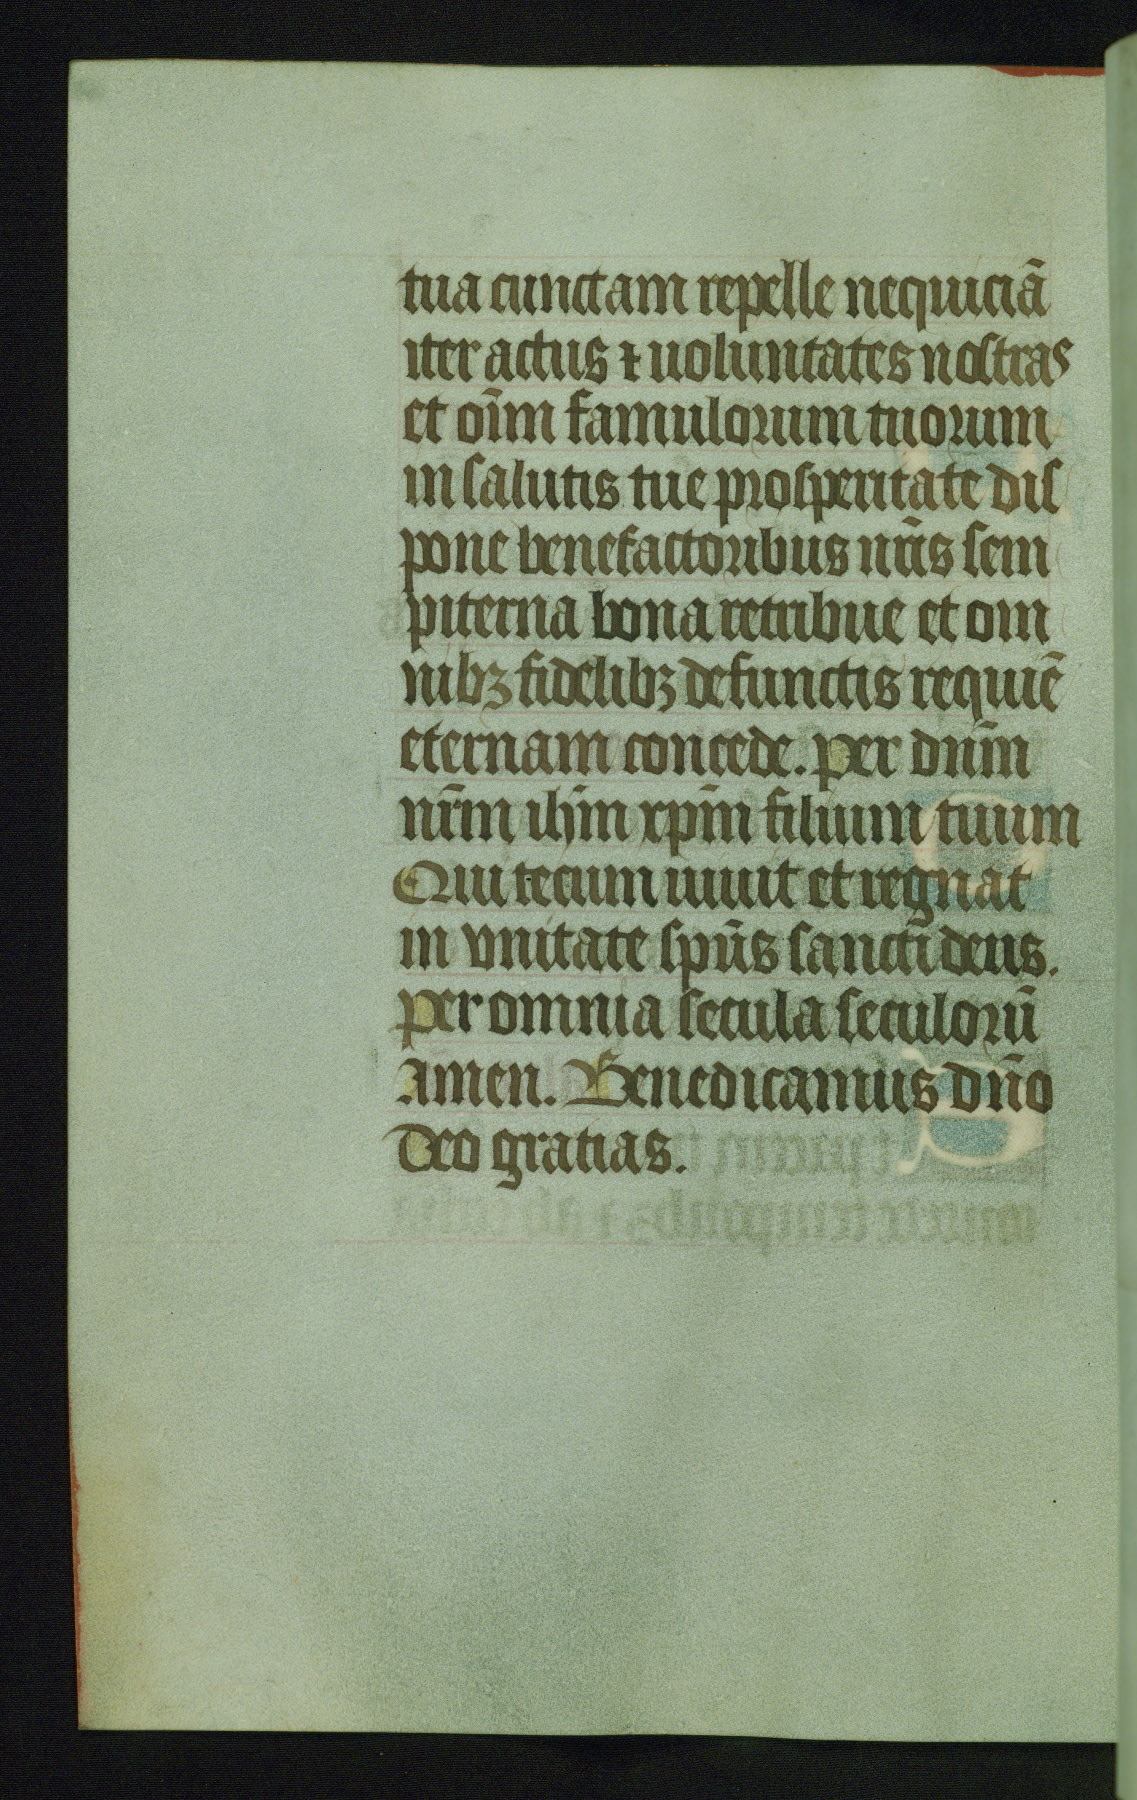 tua cunctam repelle nequiciā
iter actus ⁊ uoluntates nostras
et oīm famulorum tuorum
in salutis tue prosperitate dis
pone benefactoribus nr̄is sem
piterna bona retribue et om
nibꝫ fidelibꝫ defunctis requiē
eternam concede. per dnm̄
nrm̄ ihm̄ xpm̄ filium tuum
Qui tecum uiuit et regnat
in vnitate spūs sancti deus.
per omnia secula seculorū
Amen. Benedicamus dno̅
Deo gratias.